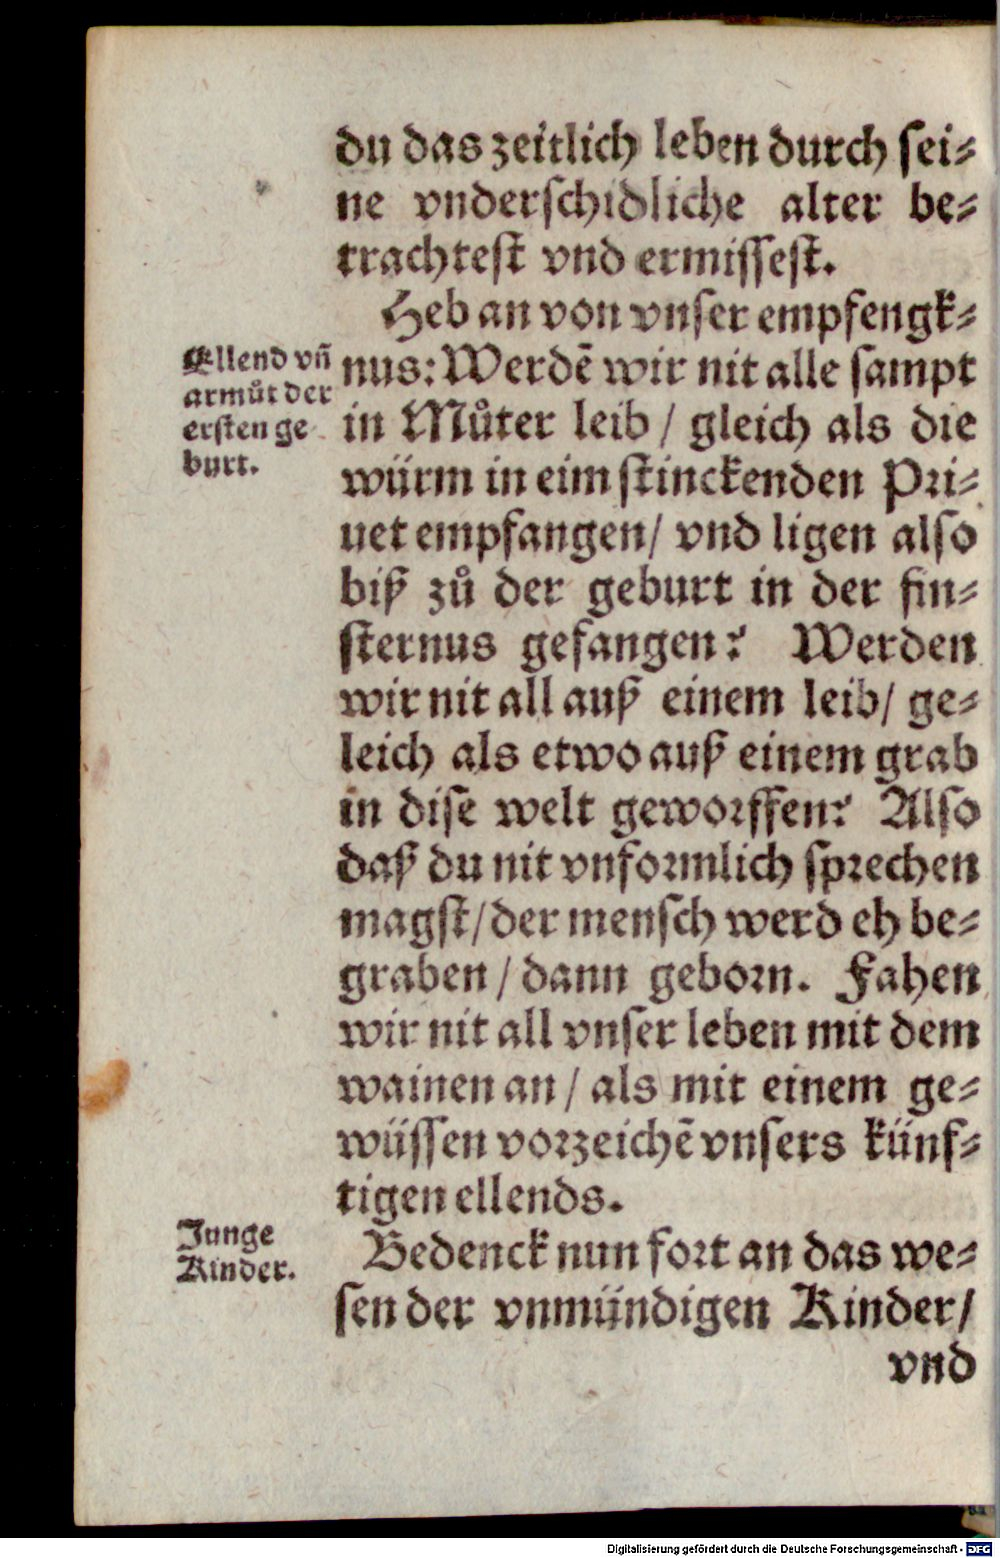 du das zeitlich leben durch sei⸗
ne vnderschidliche alter be⸗
trachtest vnd ermissest.
Heb an von vnser empfengk⸗
Ellend vñ
armůt der
ersten ge
burt.
nus: Werdē wir nit alle sampt
in Můter leib / gleich als die
würm in eim stinckenden Pri⸗
uet empfangen / vnd ligen also
biß zů der geburt in der fin⸗
sternus gefangen? Werden
wir nit all auß einem leib / ge⸗
leich als etwo auß einem grab
in dise welt geworffen? Also
daß du nit vnformlich sprechen
magst / der mensch werd eh be⸗
graben / dann geborn. Fahen
wir nit all vnser leben mit dem
wainen an / als mit einem ge⸗
wüssen vorzeichē vnsers künf⸗
tigen ellends.
Junge
Kinder.
Bedenck nun fort an das we⸗
sen der vnmündigen Kinder /
vnd
Digitalisierung gefördert durch die Deutsche Forschungsgemeinschaft - DFG